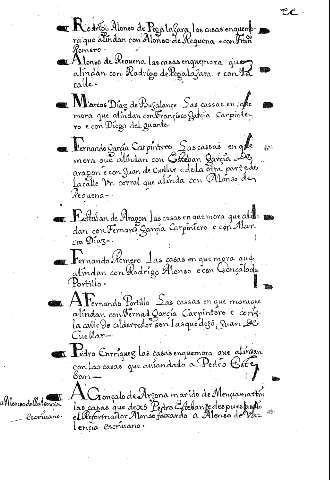 Rodrigo Alonso de Pegalajara, las casas en que mo
ra que alindan con Alonso de Requena e con Fran
Romero.
Alonso de Requena las casas en que mora que
alindan con Rodrigo de Pegalajara e con la
calle.
Marcos Diaz de Bujalance Las cassas en que
mora que alindan con Francisco Garcia Carpinte
ro e con Diego del guante.
Fernando Garcia Carpintero Las cassas en que
mora que alindan con Esteban Garcia de
aragon e con Juan de Cuellar e de la otra parte de
la calle un corral que alinda con Alonso de
Requena
Esteban de Aragon las casas en que mora que alin
dan con Fernando Garcia Carpintero e con Mar
cos Diaz.
Fernando Romero las casas en que mora que
alindan con Rodrigo Alonso e con Gonçalo de
Portillo.
A Fernando Portillo Las cassas en que mora que
alindan con Fernand Garcia Carpintero e con
la calle de son las que dejó Juan de
Cuellar
Pedro Enrriquez las casas en que mora que alindan
con las casas que Pedro Este
ban
A Gonçalo de Arjona marido de
las casas que dexó Pedro Esteban e despues
el Reformador Alonso faxardo a Alonso de Va
lencia escriuano.
a Alonso de Valencia
escriuano.